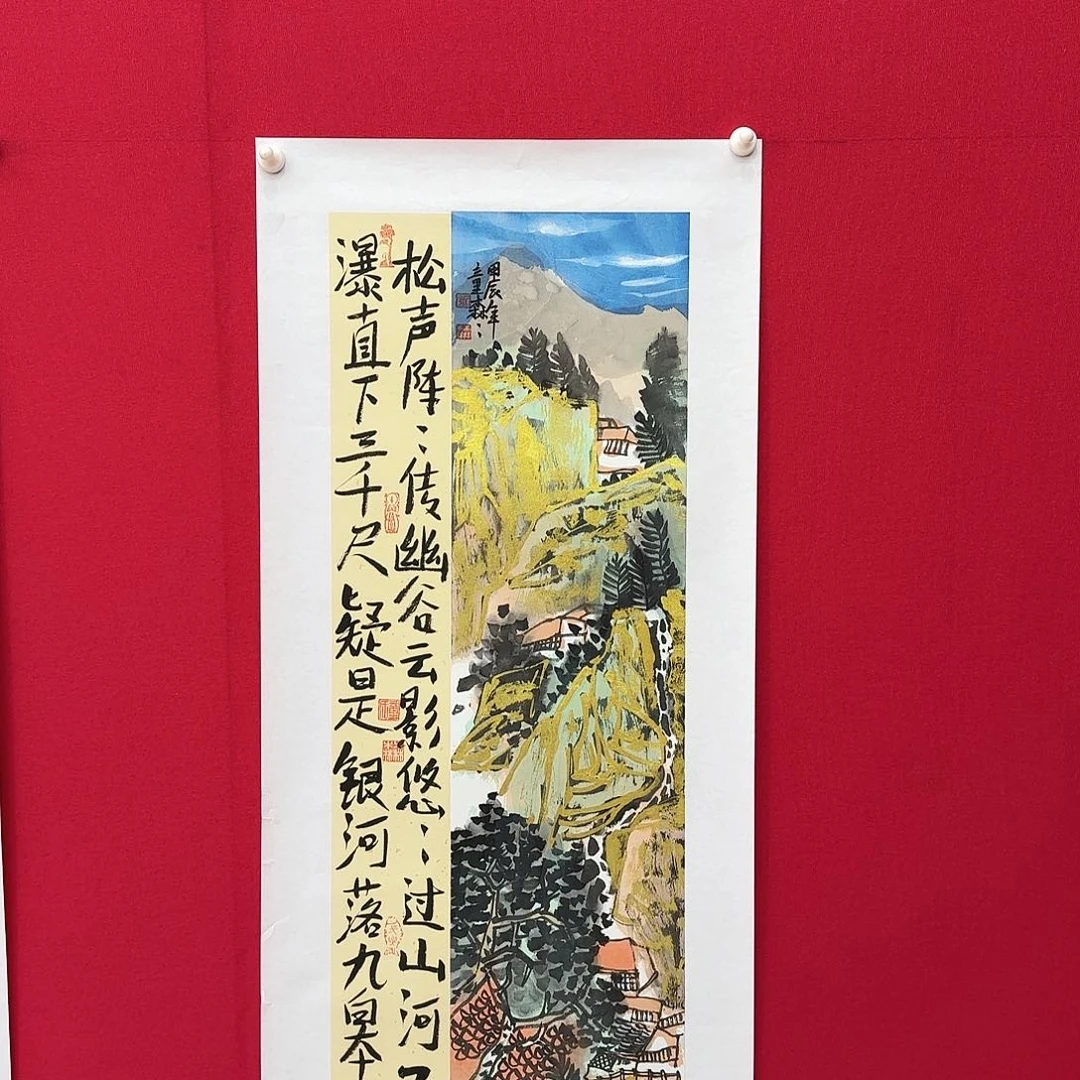 甲辰年
立里森〻
松声阵〻传幽谷云影悠〻过山河
瀑直下三千尺疑是银河落九皋